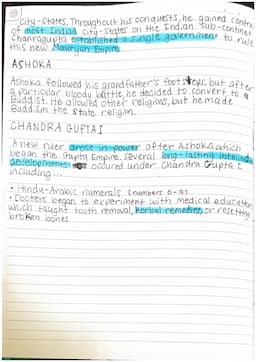 city-states. Throughout his conquests, he gained control
of most Indian city-states on the Indian sub-continent
Chanragupta established a single government to rule
this new Mauryan Empire.
ASHOKA
Ashoka followed his grandfather's footsteps, but after
a particular bloody battle, he decided to convert to a
Buddist. He allowed other religions, but he made
Buddism the state religion.
CHANDRA GUPTA I
A new ruler arose in power after Ashoka which
began the Gupta Empire. Several long-lasting intellectual
developments occured under Chandra Gupta I
including...
• Hindu-Arabic numerals (numbers 0-9)
• Doctors began to experiment with medical education
which taught tooth removal, herbal remedies, or resetting
broken bones